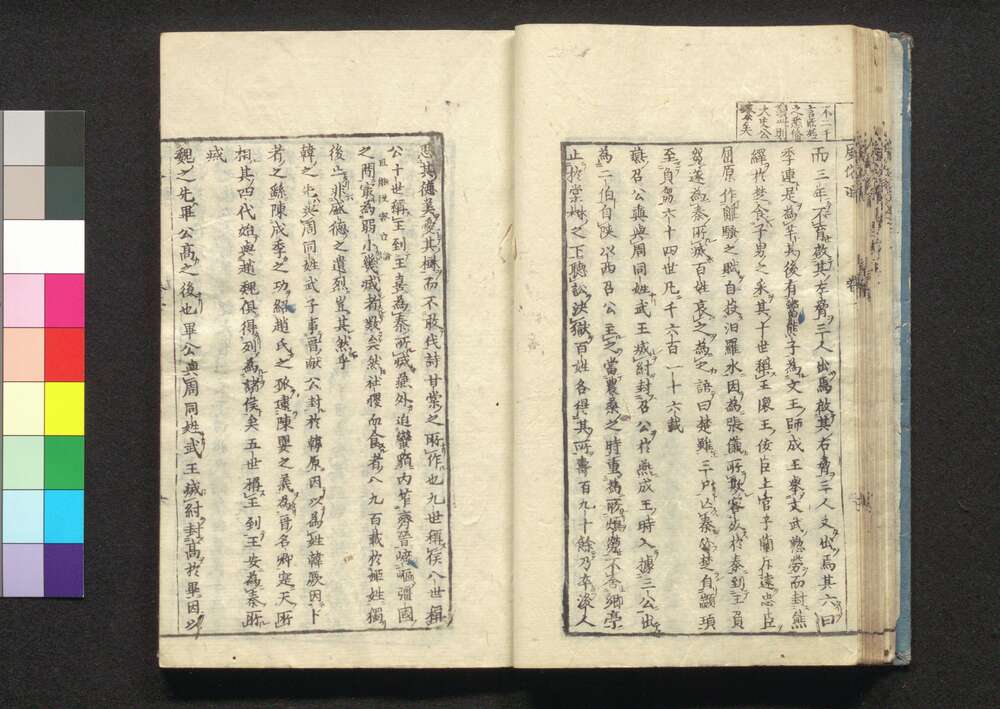 而三年不育啟其左脅三人出焉啟其右脅三人又出焉其六曰
季連是為羋其後有鬻熊子為文王師成王舉文武勤労而封熊
繹於楚食子男之采其十世稱王懷王佞臣上官子蘭斥遠忠臣
屈原作離騒之賦自投汨羅水因為張儀所欺客死於秦到王負
芻遂為秦所滅百姓哀之為之語曰楚雖三戸亡秦必楚自顓頊
至負芻六十四世凡千六百一十六載
燕召公奭與周同姓武王滅紂封召公於燕成王時入據三公出
為二伯自陝以西召公主之當農桑之時重為所煩労不舎郷亭
止於棠樹之下聽訟決獄百姓各得其所壽百九十餘乃卒後人
思其德美愛其樹而不敢伐詩甘棠之所作也九世稱侯八世稱
公十世稱王到王喜為秦所滅燕外迫蠻貊内笮齊晉崎嶇彊國
之間最為弱小幾滅者數矣然社稷血食者八九百載於姬姓獨
後亡非盛德之遺烈豈其然乎
韓之先與周同姓武子事晉獻公封於韓原因以為姓韓厥因卜
者之繇陳成季之功紹趙氏之孤遂陳嬰之義為晉名卿定天所
相其四代始與趙魏俱得列為諸侯矣五世稱王到王安為秦所
滅
魏之先畢公高之後也畢公與周同姓武王滅紂封高於畢因以